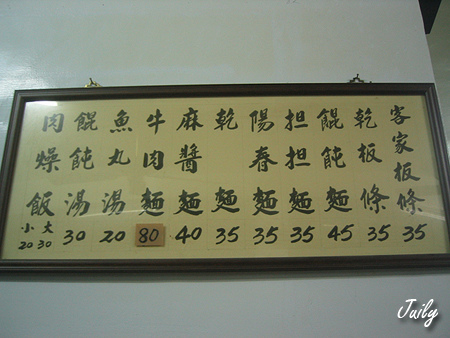 客家板條 35
乾板條 35
餛飩麵 45
担担麵 35
陽春麵 35
乾麵 35
麻醬麵 40
牛肉麵 80
魚丸湯 20
餛飩湯 30
肉燥飯 大30 小20
Juily